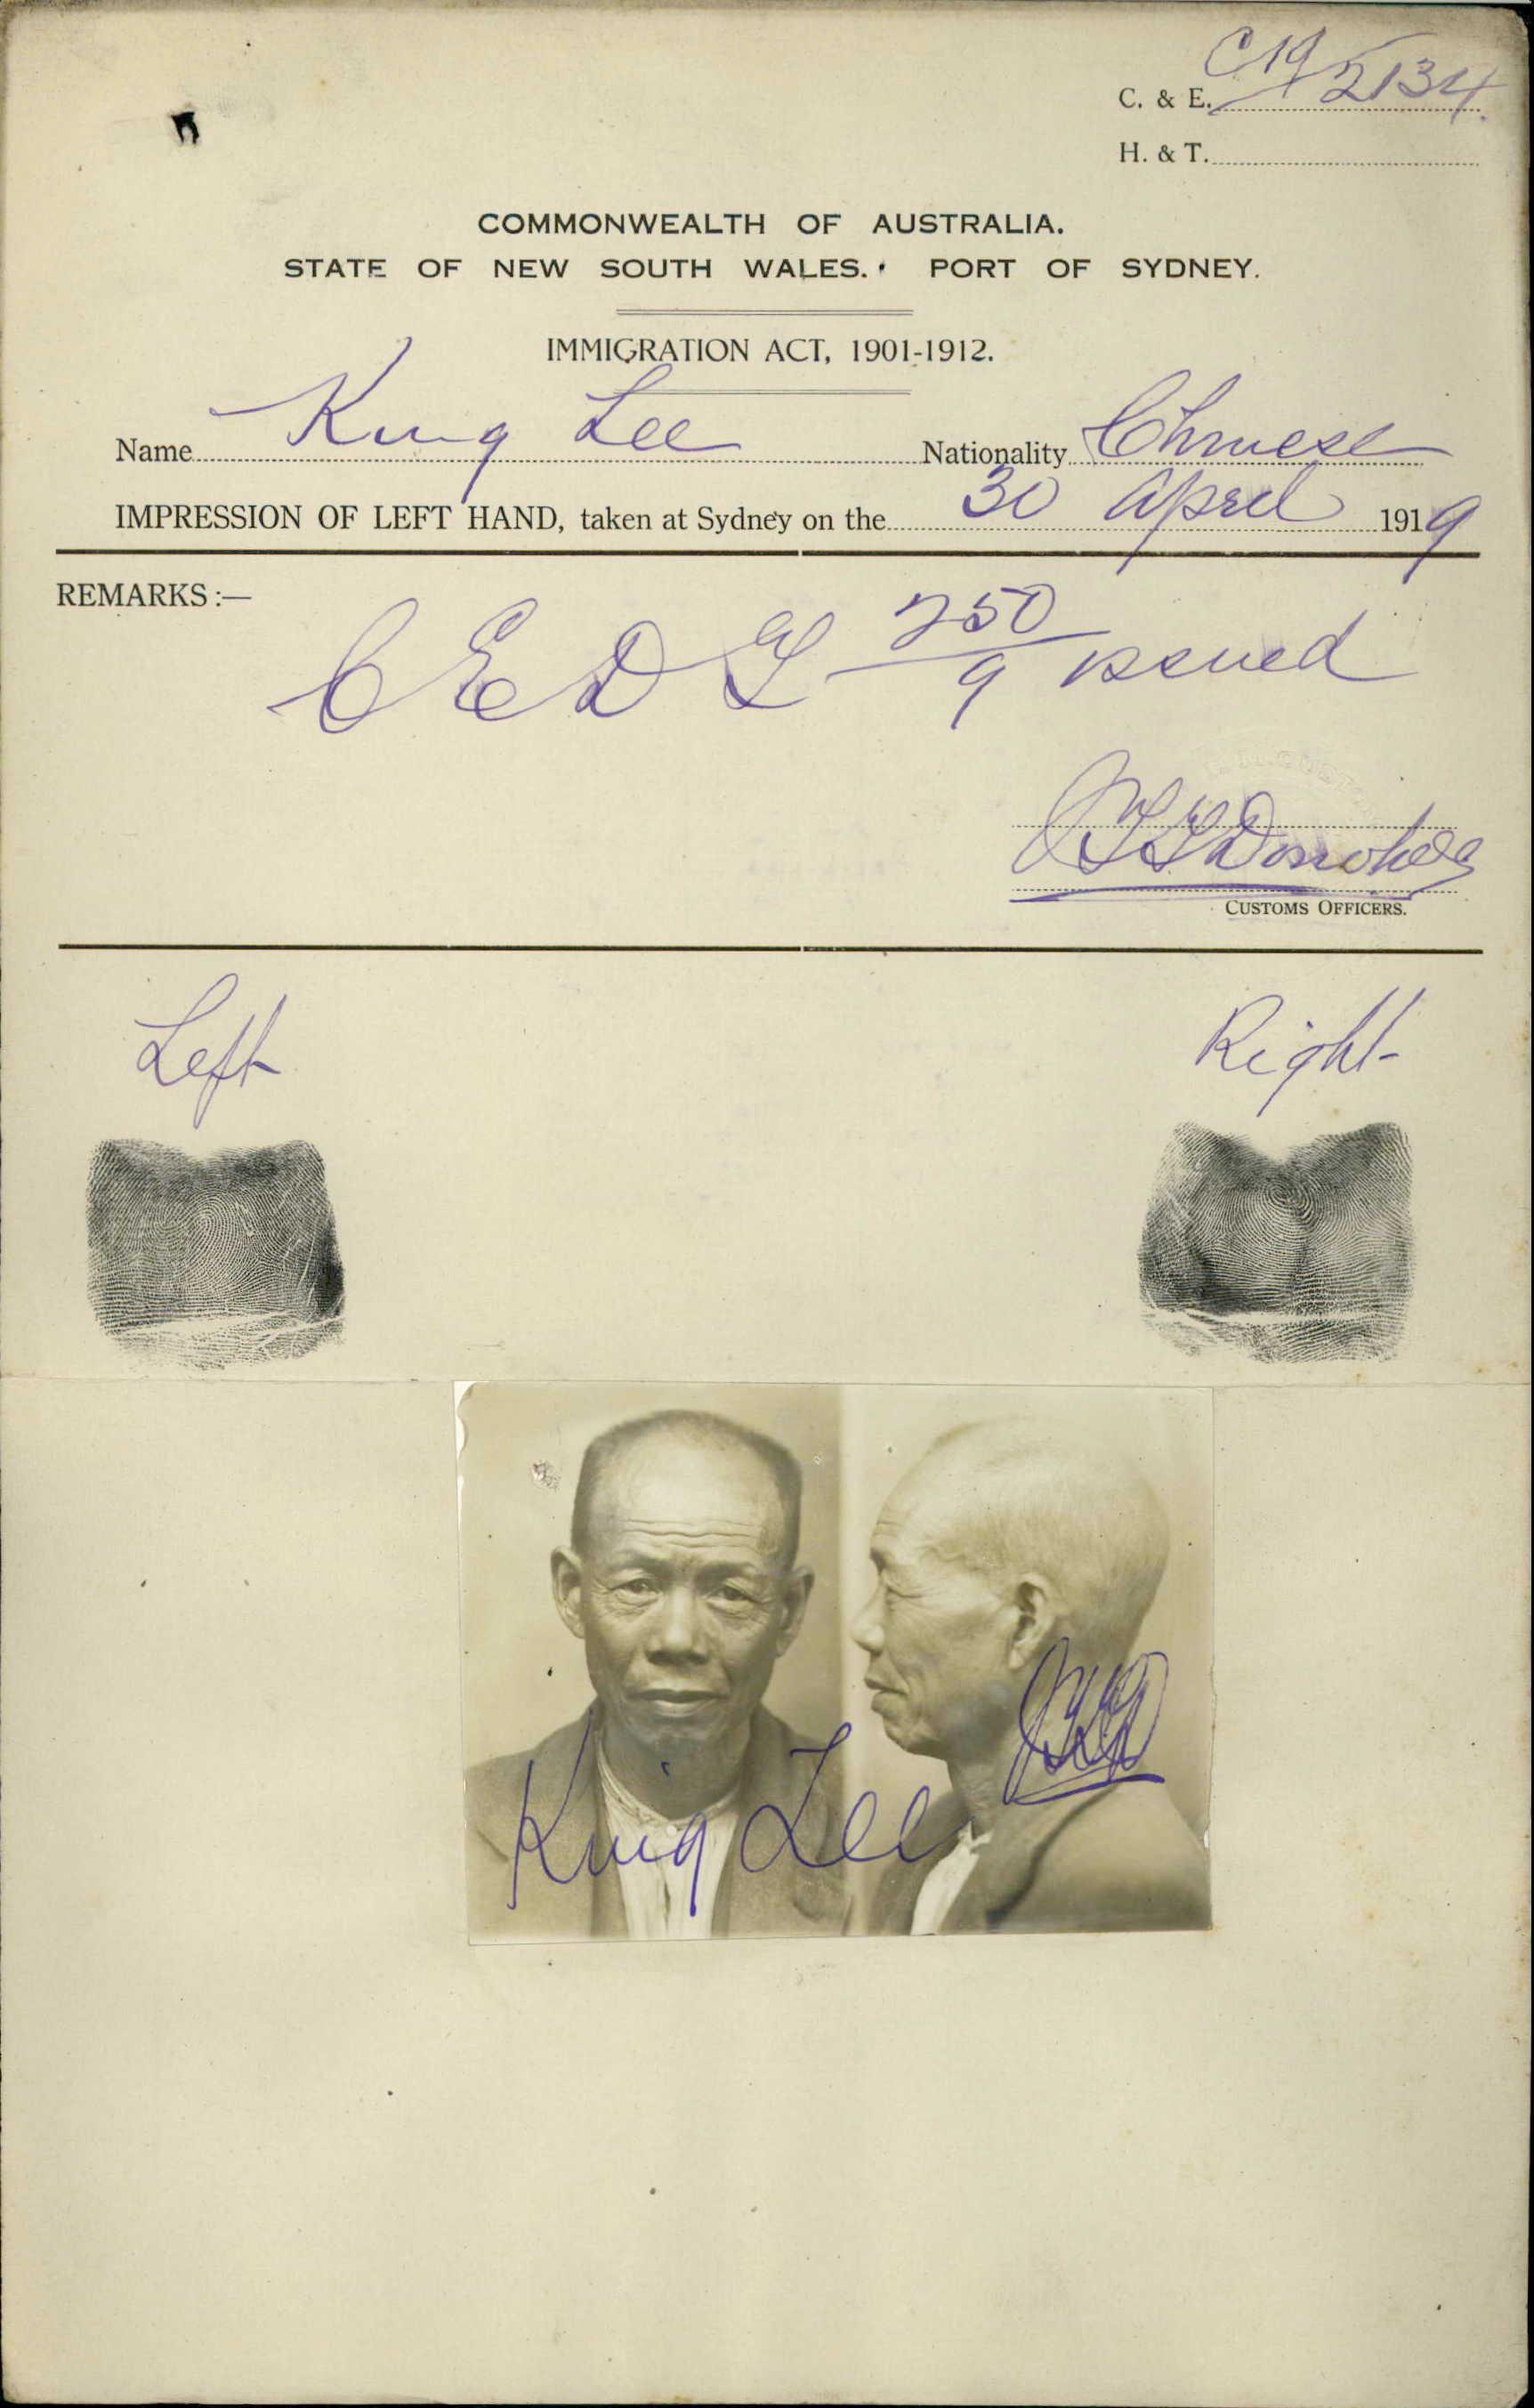 C. & E. C19/2134.
H. & T.
COMMONWEALTH OF AUSTRALIA.
STATE OF NEW SOUTH WALES. PORT OF SYDNEY.
IMMIGRATION ACT, 1901-1912.
Name King Lee Nationality Chinese
IMPRESSION OF LEFT HAND, taken at Sydney on the 30 April 1919
REMARKS :—
C E D T 250/9 issued
Donohoe
CUSTOMS OFFICERS.
Left Right
King Lee